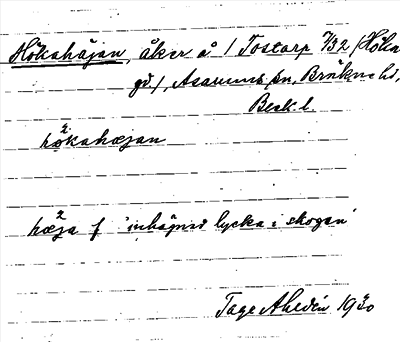 Hökahäjan, åker å 1 Tostarp 7/32 (Höka
gd.), Asarums sn, Bräkne hd,
Blek. l.
hökahæjan
hæja f 'inhägnad lycka i skogen'
Tage Ahldén 1930